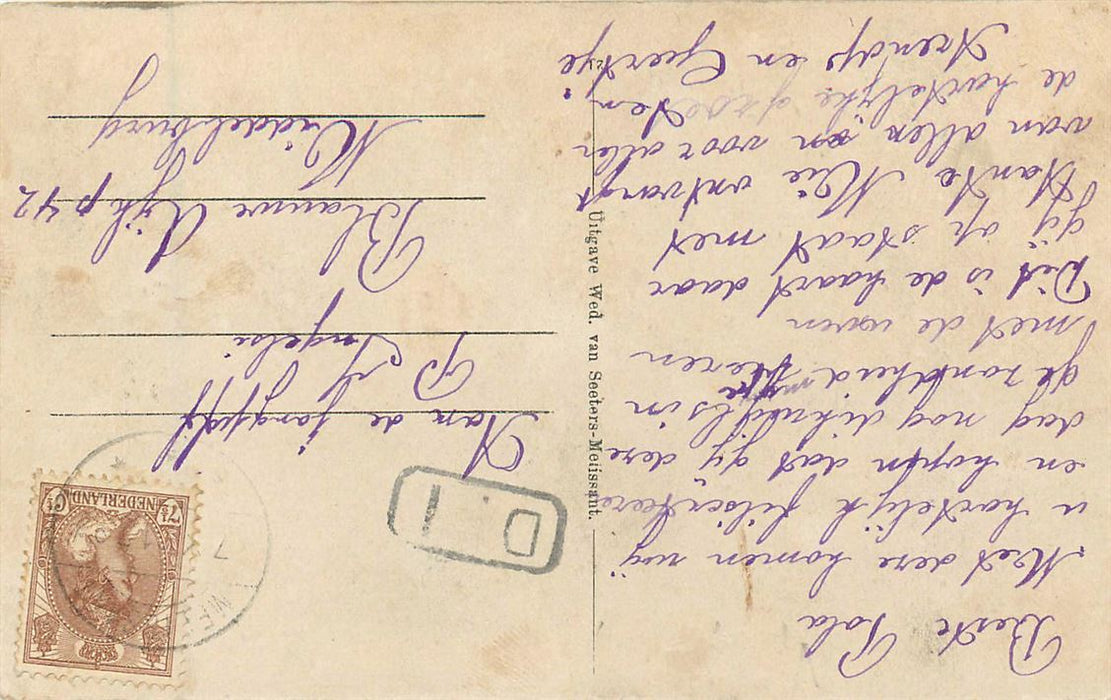 Beste Pola
Met dere komen wij
u hartelijk filsiteere
en hopen dat gij dere
dag nog dikwijls in
gezondheid mag
vieren
met de uwen
Dit is de kaart daar
gij op staat met
Tante Mie ontvangt
van allen en voor allen
de hartelijke groeten
Arendje en Geertje
Uitgave Wed. van Seeters-Melissant.
Aan de jongejuff
P Ingelse
Blauwe Dijk p 42
Middelburg
D I
NEDERLAND
7½ c